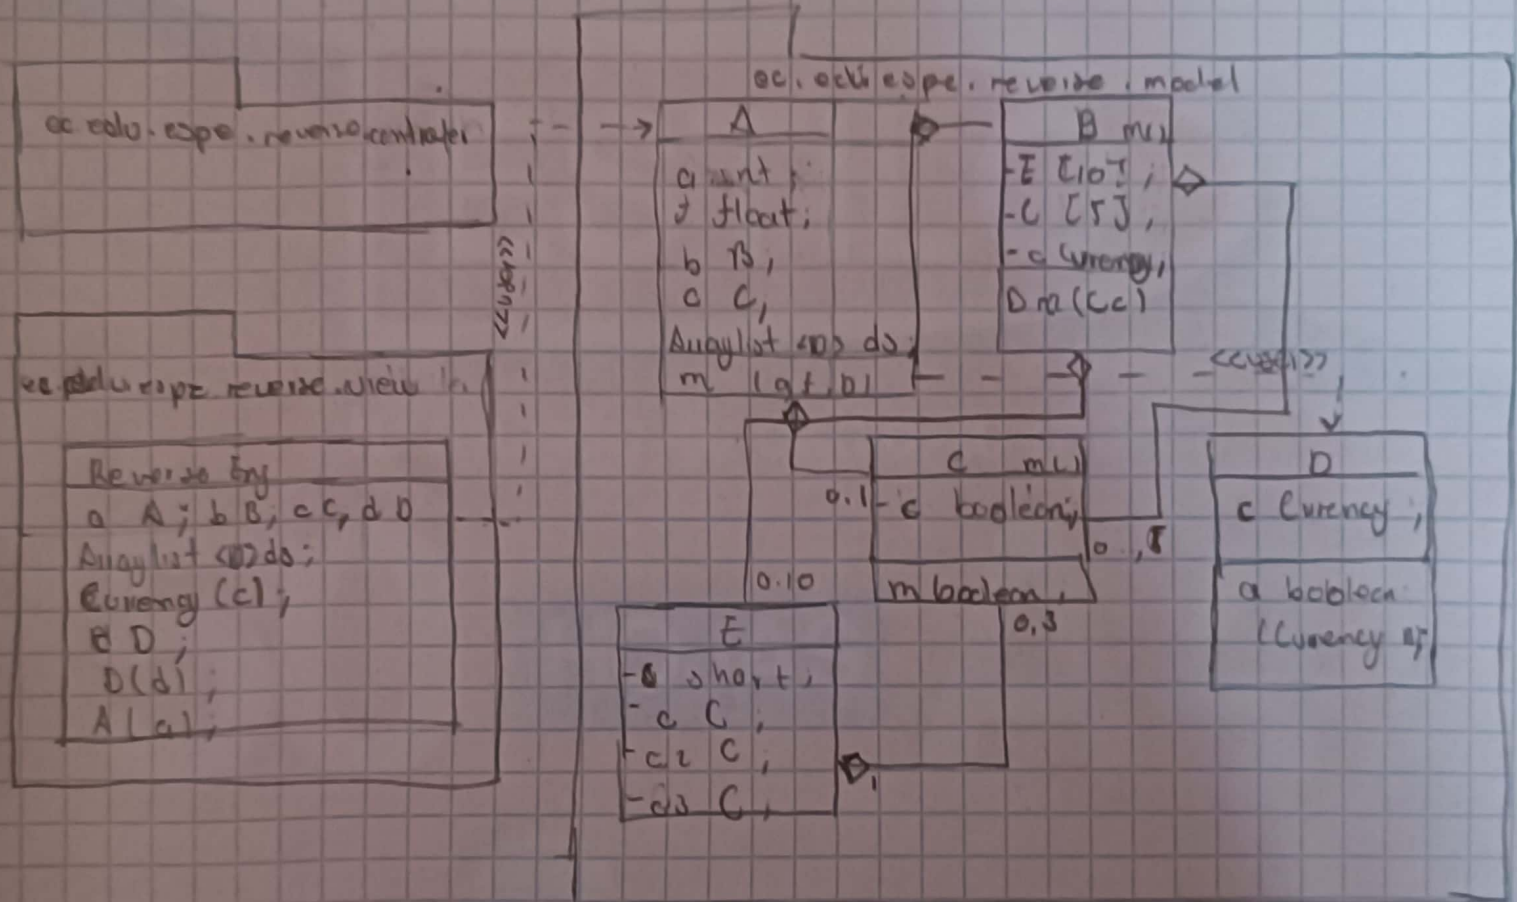 ec.edu.espe.reverse.controller
<<use>>
ec.edu.espe.reverse.view
Reverse Eng
a A; b B; c C, d D
Arraylist <D> ds;
Curency (c);
d D;
D(d);
A(a);
ec.edu.espe.reverse.model
A
a int;
f float;
b B,
c C,
Arraylist <D> ds;
m (a f, b)
B m()
-E [10];
-C [5],
-c Curency,
D m(C c)
<<use>>
C m()
0.1
-c boolean;
0..,5
m boolean,
0.10
0,3
D
c Curency;
a boolean
(Curency
E
short;
-c C;
-c2 C,
C,
1